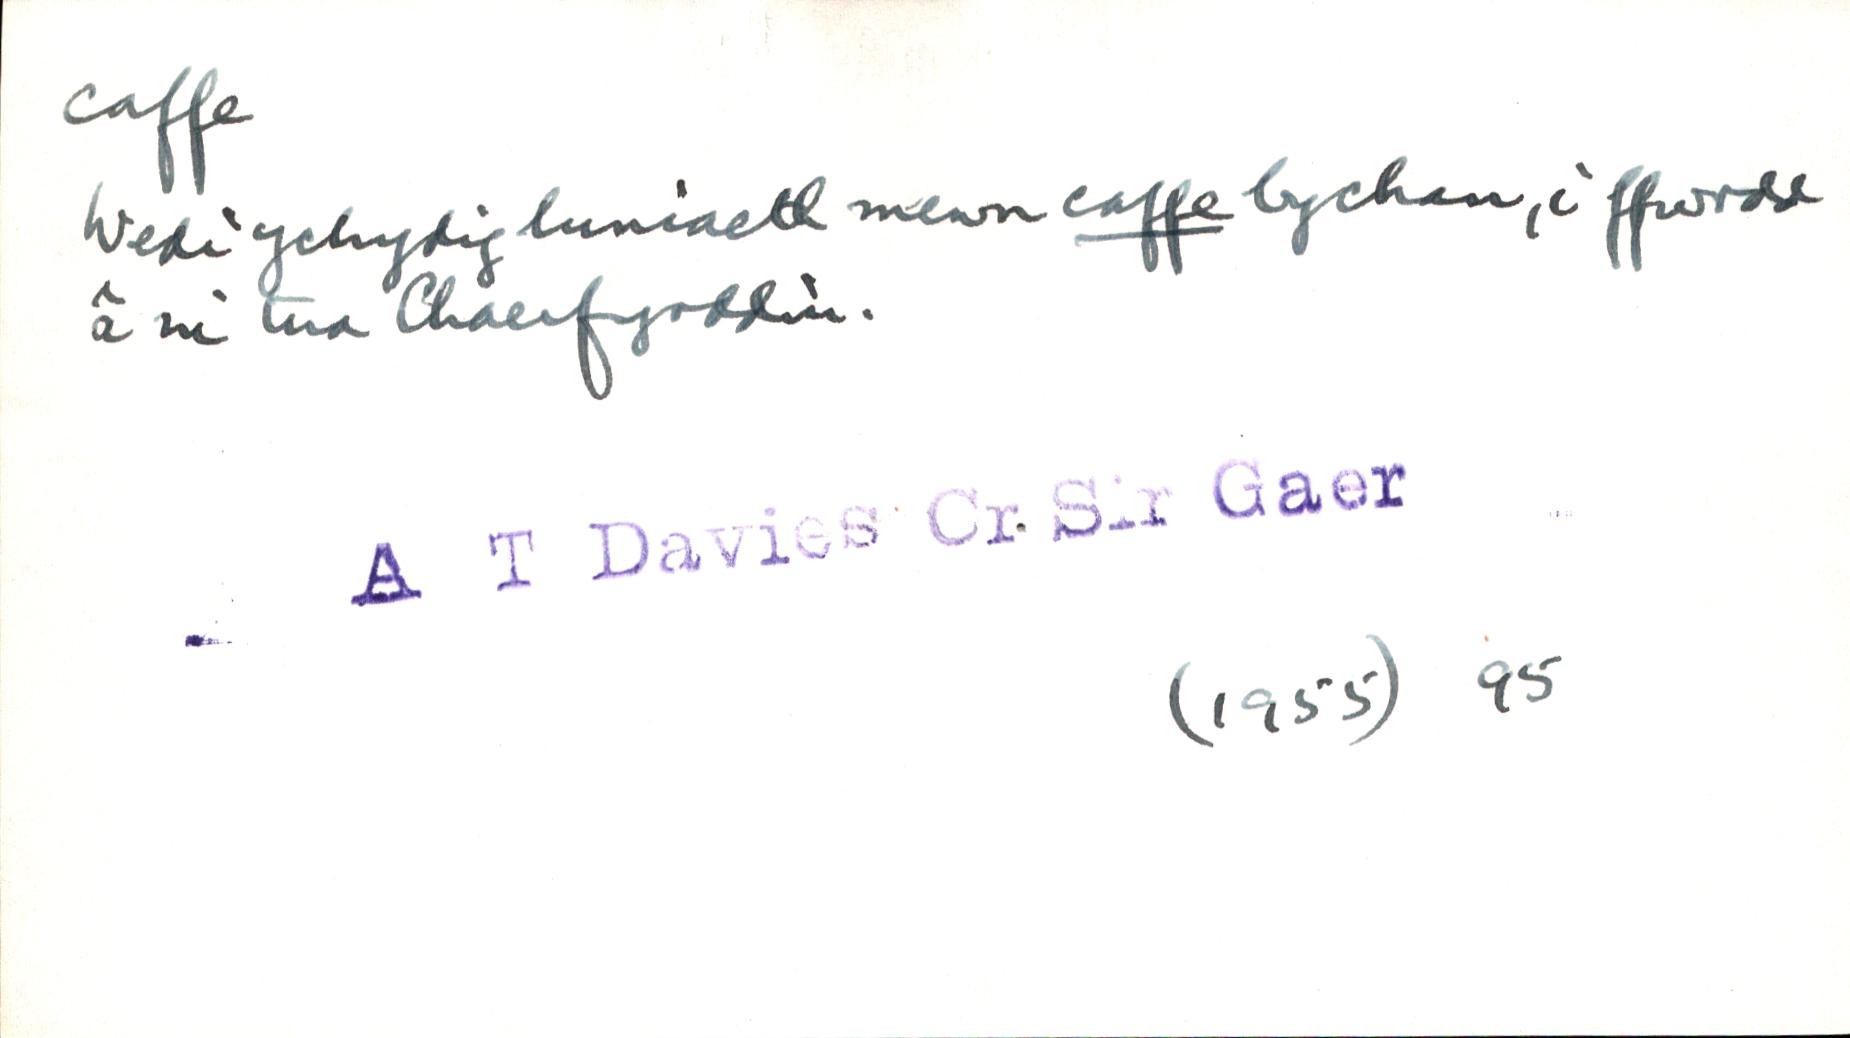 caffe
Wedi ychydig luniaeth mewn caffe bychan, i ffwrdd
â ni tua Chaerfyrddin.
A T Davies Cr. Sir Gaer
(1955) 95